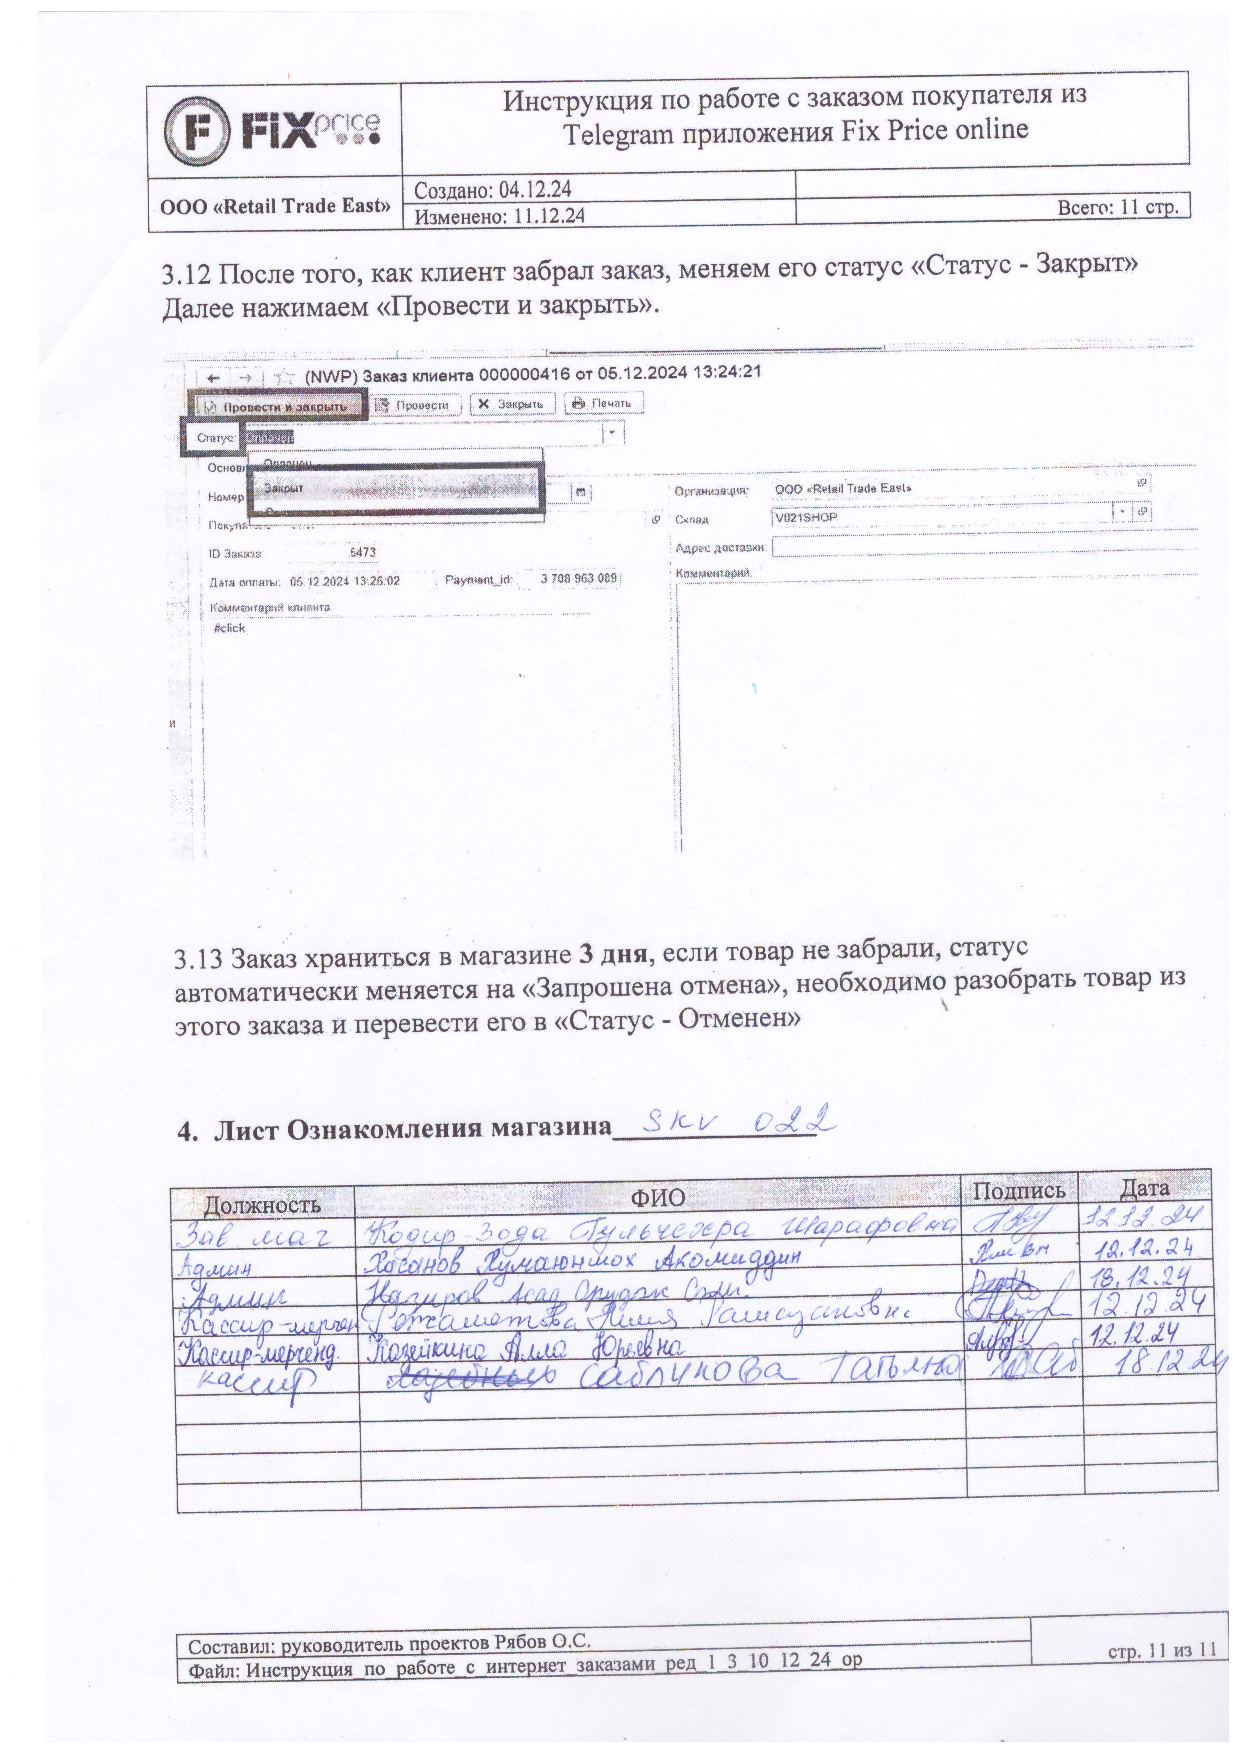 FiXprice
Инструкция по работе с заказом покупателя из
Telegram приложения Fix Price online
ООО «Retail Trade East»
Создано: 04.12.24
Изменено: 11.12.24
Всего: 11 стр.
3.12 После того, как клиент забрал заказ, меняем его статус «Статус - Закрыт»
Далее нажимаем «Провести и закрыть».
(NWP) Заказ клиента 000000416 от 05.12.2024 13:24:21
Провести и закрыть Провести Закрыть Печать
Статус: Оплачен
Оплачен
Закрыт
Номер
Организация: ООО «Retail Trade East»
Склад V021SHOP
ID Заказа 5473
Адрес доставки:
Дата оплаты: 05.12.2024 13:26:02 Payment_id: 3 708 963 089
Комментарий:
Комментарий клиента
#click
и
3.13 Заказ храниться в магазине 3 дня, если товар не забрали, статус
автоматически меняется на «Запрошена отмена», необходимо разобрать товар из
этого заказа и перевести его в «Статус - Отменен»
4. Лист Ознакомления магазина SKV 022
Должность ФИО Подпись Дата
Зав маг Кодир-Зода Гульчехра Шарафовна 12.12.24
Админ Хасанов Хумаюншох Акомиддин 12.12.24
Админ Назиров Асад 18.12.24
Кассир-мерчен 12.12.24
Кассир-мерченд. Казейкина Алла Юрьевна 12.12.24
кассир Саблукова Татьяна 18.12.24
Составил: руководитель проектов Рябов О.С.
Файл: Инструкция_по_работе_с_интернет_заказами_ред_1_3_10_12_24_ор
стр. 11 из 11